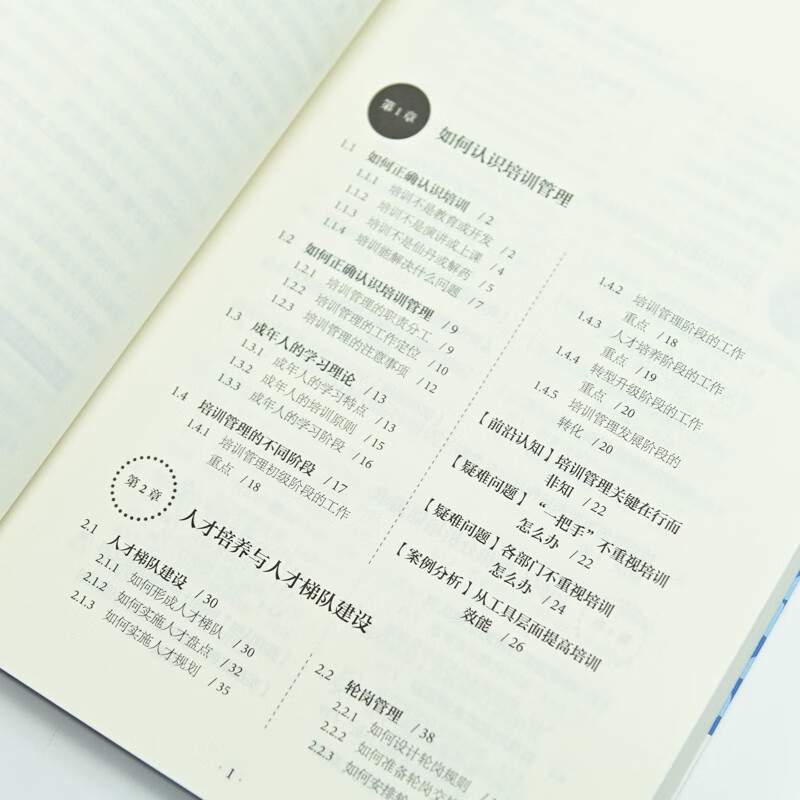 第1章
如何认识培训管理
1.1 如何正确认识培训 / 2
1.1.1 培训不是教育或开发 / 2
1.1.2 培训不是演讲或上课 / 4
1.1.3 培训不是仙丹或解药 / 5
1.1.4 培训能解决什么问题 / 7
1.2 如何正确认识培训管理 / 9
1.2.1 培训管理的职责分工 / 9
1.2.2 培训管理的工作定位 / 10
1.2.3 培训管理的注意事项 / 12
1.3 成年人的学习理论 / 13
1.3.1 成年人的学习特点 / 13
1.3.2 成年人的培训原则 / 15
1.3.3 成年人的学习阶段 / 16
1.4 培训管理的不同阶段 / 17
1.4.1 培训管理初级阶段的工作
重点 / 18
1.4.2 培训管理阶段的工作
重点 / 18
1.4.3 人才培养阶段的工作
重点 / 19
1.4.4 转型升级阶段的工作
重点 / 20
1.4.5 培训管理发展阶段的
转化 / 20
【前沿认知】培训管理关键在行而
非知 / 22
【疑难问题】“一把手”不重视培训
怎么办 / 22
【疑难问题】各部门不重视培训
怎么办 / 24
【案例分析】从工具层面提高培训
效能 / 26
第2章
人才培养与人才梯队建设
2.1 人才梯队建设 / 30
2.1.1 如何形成人才梯队 / 30
2.1.2 如何实施人才盘点 / 32
2.1.3 如何实施人才规划 / 35
2.2 轮岗管理 / 38
2.2.1 如何设计轮岗规则
2.2.2 如何准备轮岗交
2.2.3 如何安排轮
· 1 ·